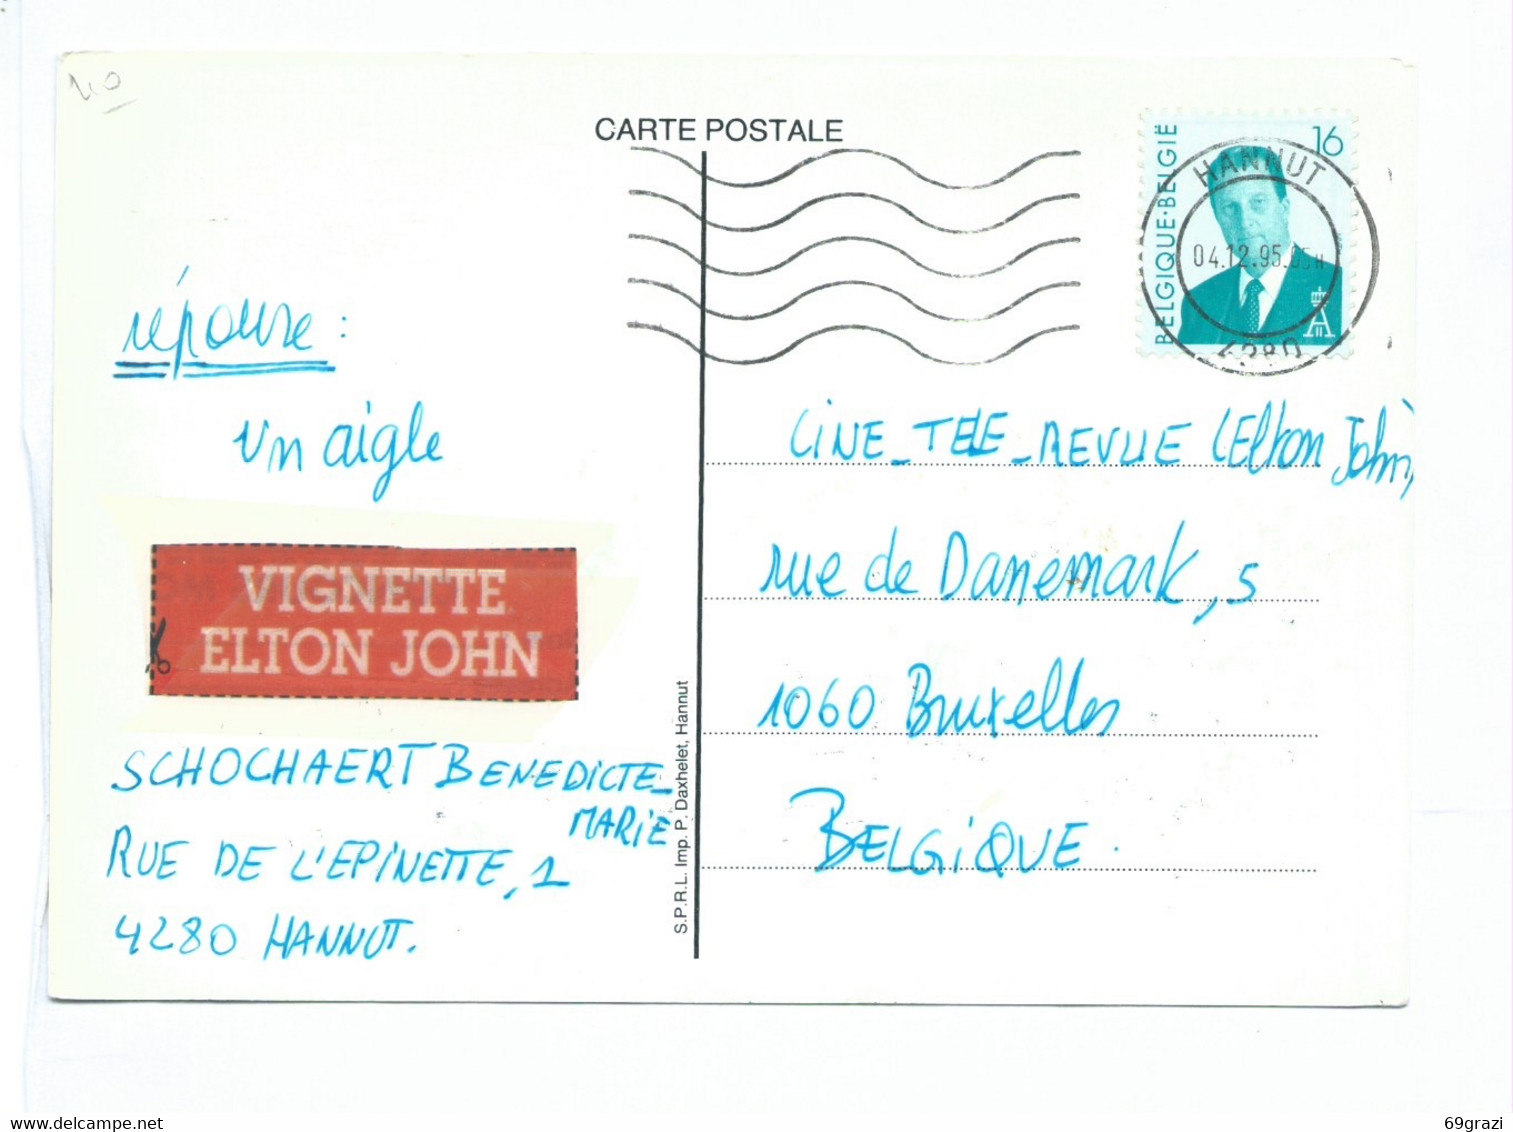 CARTE POSTALE
BELGIQUE·BELGIË
16
HANNUT
04.12.95.
4280
réponse :
un aigle
VIGNETTE
ELTON JOHN
SCHOCHAERT BENEDICTE-
MARIE
RUE DE L'EPINETTE, 1
4280 HANNUT.
S.P.R.L. Imp. P. Daxhelet, Hannut
CINE_TELE_REVUE (Elton John)
rue de Danemark, 5
1060 Bruxelles
BELGIQUE.
www.delcampe.net
69grazi